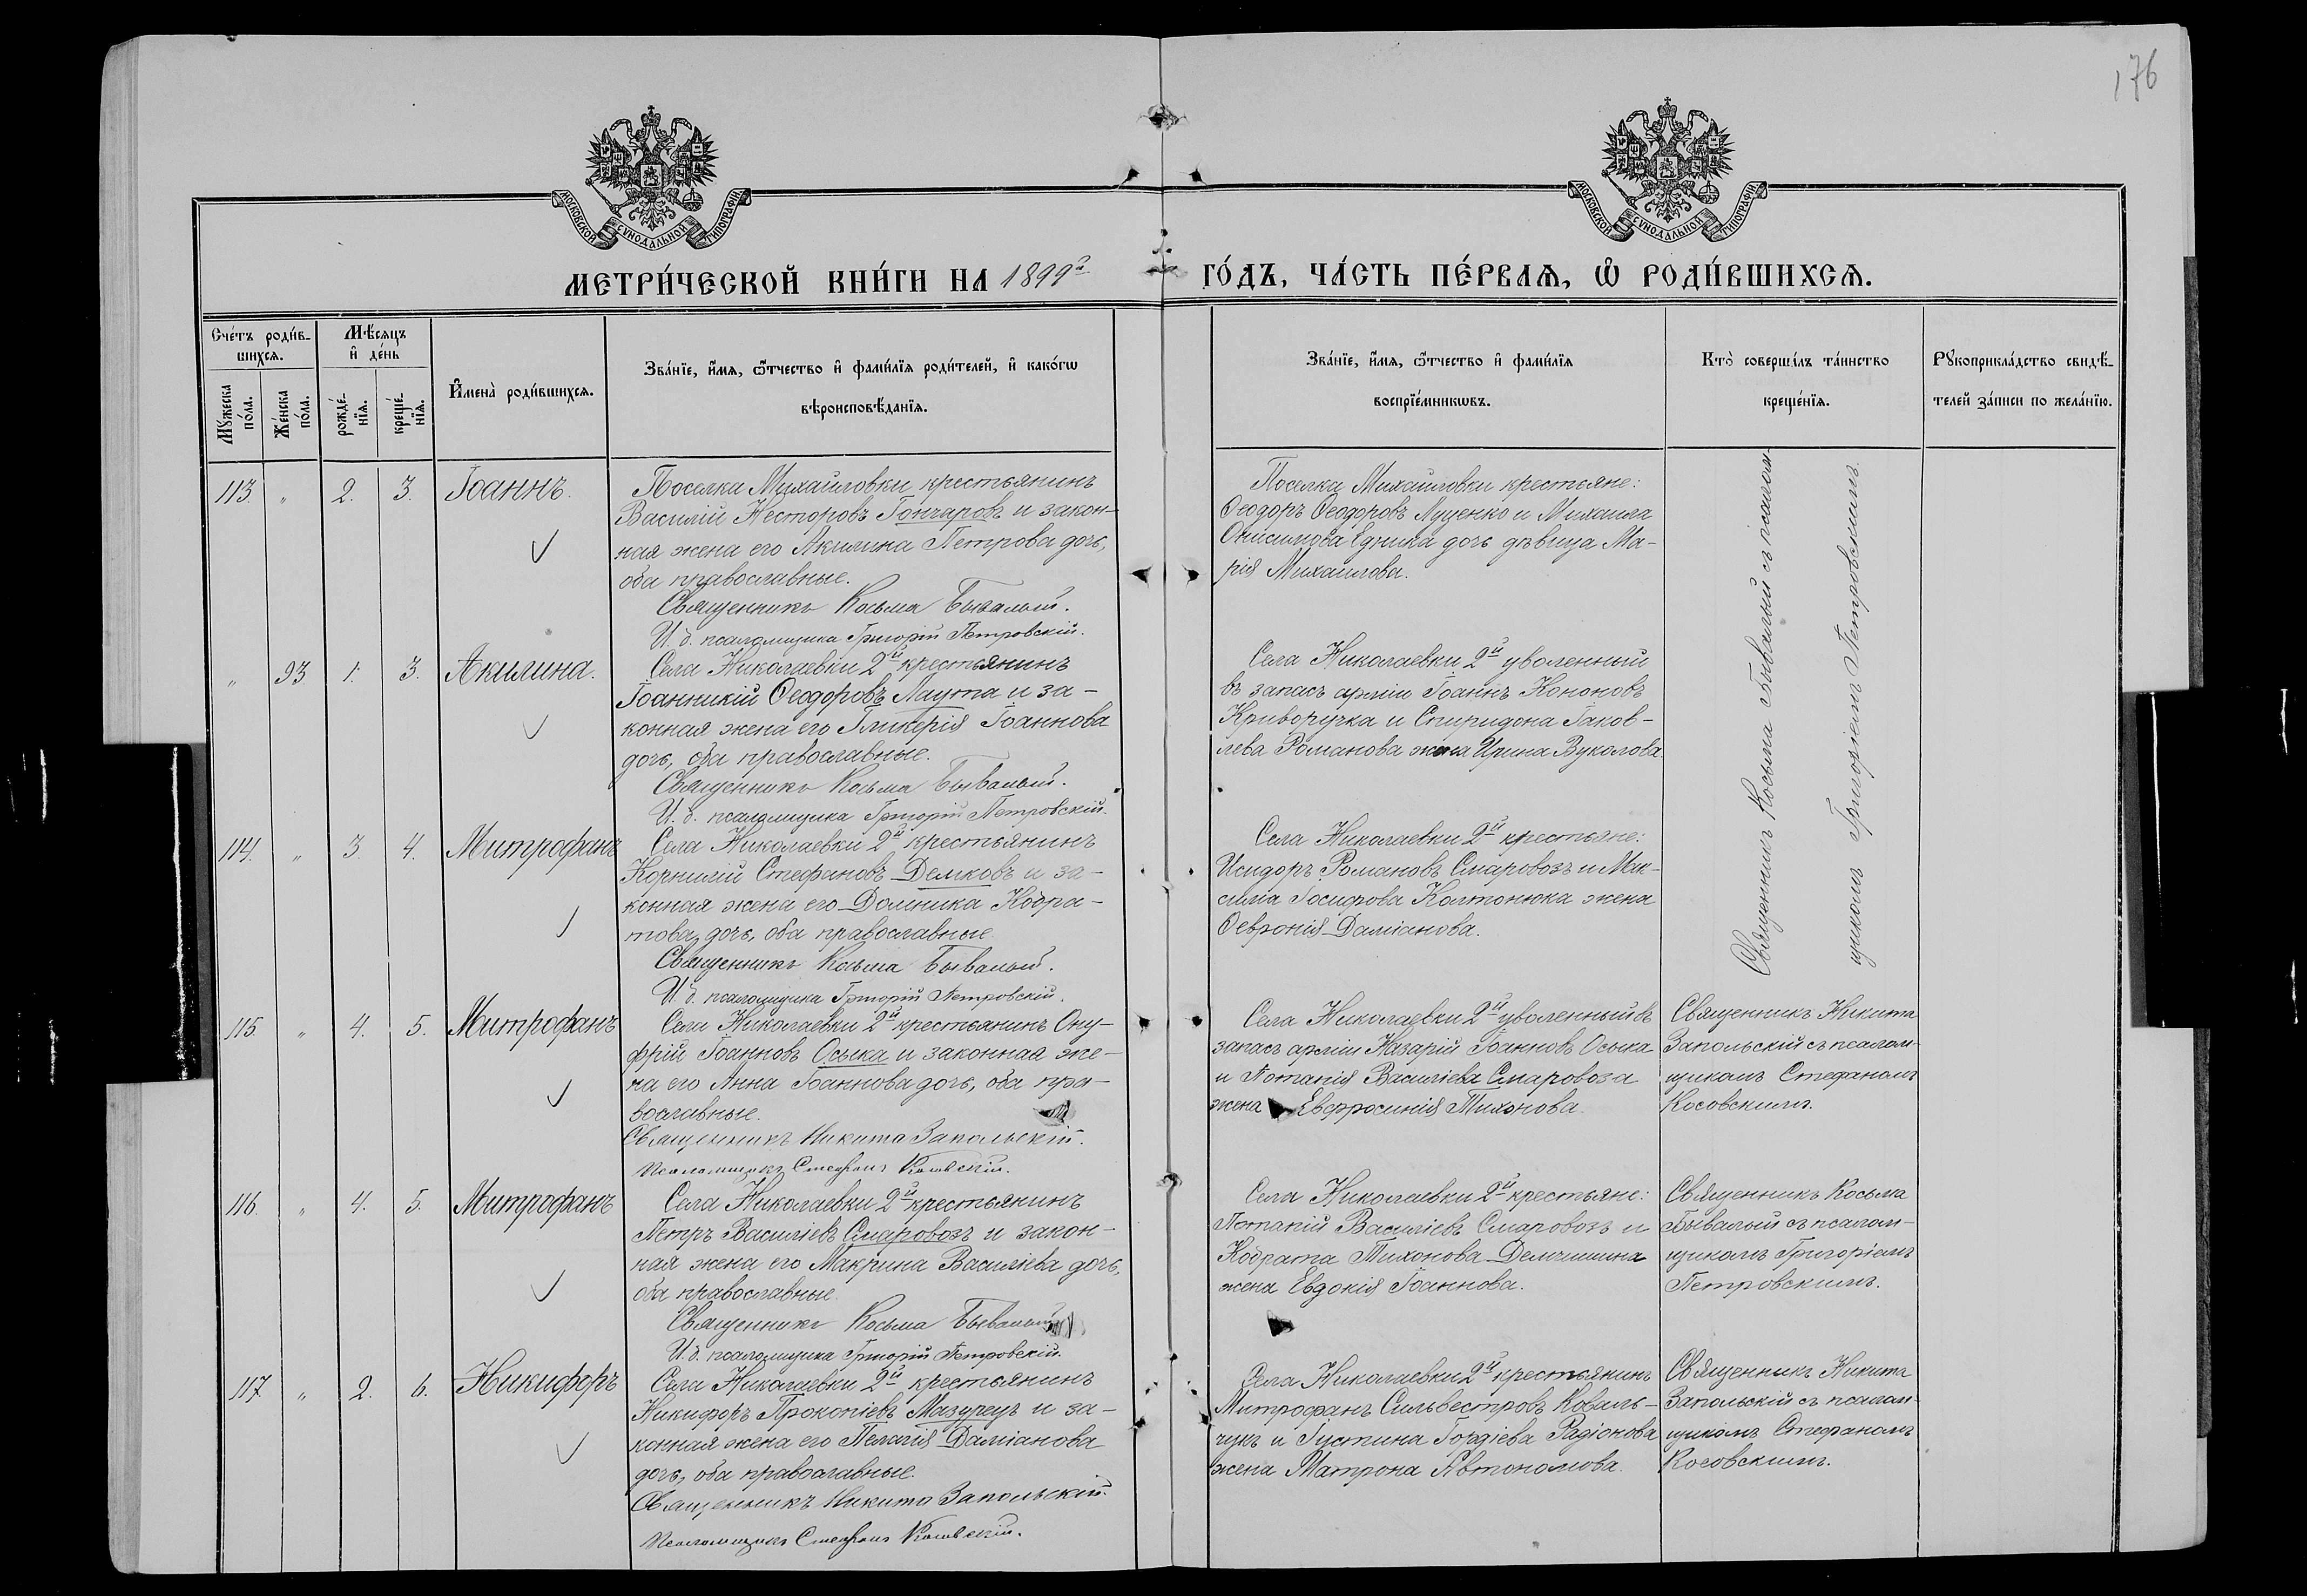 176
МОСКОВСКОЙ СѴНОДАЛЬНОЙ ТИПОГРАФІИ
МОСКОВСКОЙ СѴНОДАЛЬНОЙ ТИПОГРАФІИ
МЕТРИ́ЧЕСКОЙ КНИ́ГИ НА 1899й ГО́ДЪ, ЧА́СТЬ ПЕ́РВАѦ, Ѡ҆ РОДИ́ВШИХСѦ.
Сче́тъ роди́в-
шихсѧ.
Мꙋ́жеска по́ла.
Же́нска по́ла.
Мѣ́сѧцъ
и҆ де́нь
рожде́-
нїѧ.
креще́-
нїѧ.
И҆мена̀ роди́вшихсѧ.
Зва́нїе, и҆́мѧ, ѻ҆́тчество и҆ фами́лїѧ роди́телей, и҆ како́гѡ
вѣроисповѣ́данїѧ.
Зва́нїе, и҆́мѧ, ѻ҆́тчество и҆ фами́лїѧ
воспрїе́мникѡвъ.
Кто̀ соверша́лъ та́инство
креще́нїѧ.
Рꙋкоприкла́дство свидѣ́-
телей за́писи по жела́нїю.
113. „ 2. 3. Іоаннъ.
Поселка Михайловки крестьянинъ
Василій Несторовъ Гончаровъ и закон-
ная жена его Акилина Петрова дочь,
оба православные.
Священникъ Косьма Бывалый.
И. д. псаломщика Григорій Петровскій.
Поселка Михайловки крестьяне:
Ѳеодоръ Ѳеодоровъ Луценко и Михаила
Онисимова Едника дочь дѣвица Ма-
рія Михаилова.
Священникъ Косьма Бывалый съ псалом-
щикомъ Григоріемъ Петровскимъ.
„ 93 1. 3. Акилина.
Села Николаевки 2й крестьянинъ
Іоанникій Ѳеодоровъ Лаута и за-
конная жена его Гликерія Іоаннова
дочь, оба православные.
Священникъ Косьма Бывалый.
И. д. псаломщика Григорій Петровскій.
Села Николаевки 2й уволенный
въ запасъ арміи Іоаннъ Кононовъ
Криворучка и Спиридона Іаков-
лева Романова жена Ирина Вуколова.
114. „ 3. 4. Митрофанъ
Села Николаевки 2й крестьянинъ
Корнилій Стефановъ Демковъ и за-
конная жена его Домника Кодра-
това дочь, оба православные.
Священникъ Косьма Бывалый.
И. д. псаломщика Григорій Петровскій.
Села Николаевки 2й крестьяне:
Исидоръ Романовъ Смаровозъ и Мак-
сима Іосифова Колтонюка жена
Ѳевронія Даміанова.
115. „ 4. 5. Митрофанъ
Села Николаевки 2й крестьянинъ Ону-
фрій Іоанновъ Оська и законная же-
на его Анна Іоаннова дочь, оба пра-
вославные.
Священникъ Никита Запольскій.
Псаломщикъ Стефанъ Косовскій.
Села Николаевки 2й уволенный въ
запасъ арміи Назарій Іоанновъ Оська
и Потапія Василіева Смаровоза
жена Евфросинія Тихонова.
Священникъ Никита
Запольскій съ псалом-
щикомъ Стефаномъ
Косовскимъ.
116. „ 4. 5. Митрофанъ
Села Николаевки 2й крестьянинъ
Петръ Василіевъ Смаровозъ и закон-
ная жена его Макрина Василіева дочь,
оба православные.
Священникъ Косьма Бывалый
И. д. псаломщика Григорій Петровскій.
Села Николаевки 2й крестьяне:
Потапій Василіевъ Смаровозъ и
Кодрата Тихонова Демчишина
жена Евдокія Іоаннова.
Священникъ Косьма
Бывалый съ псалом-
щикомъ Григоріемъ
Петровскимъ.
117 „ 2. 6. Никифоръ
Села Николаевки 2й крестьянинъ
Никифоръ Прокопіевъ Мазурецъ и за-
конная жена его Пелагія Даміанова
дочь, оба православные.
Священникъ Никита Запольскій.
Псаломщикъ Стефанъ Косовскій.
Села Николаевки 2й крестьянинъ
Митрофанъ Сильвестровъ Коваль-
чукъ и Іустина Гордіева Радіонова
жена Матрона Автономова.
Священникъ Никита
Запольскій съ псалом-
щикомъ Стефаномъ
Косовскимъ.